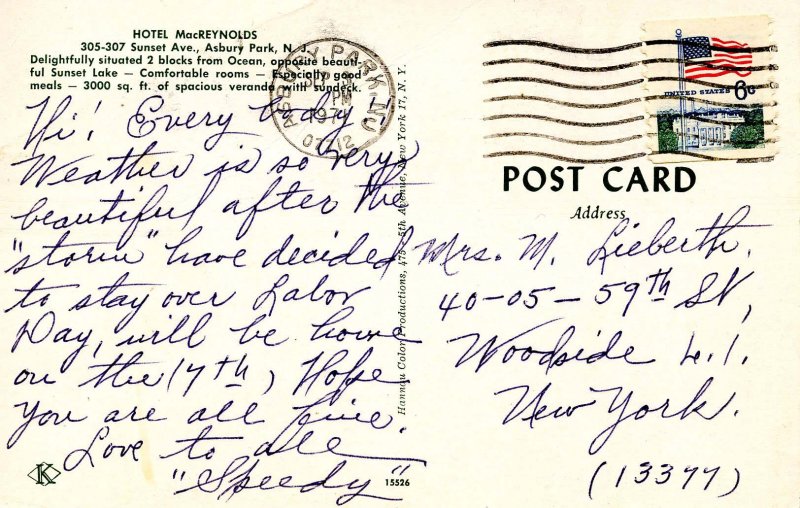 HOTEL MacREYNOLDS
305-307 Sunset Ave., Asbury Park, N. J.
Delightfully situated 2 blocks from Ocean, opposite beauti-
ful Sunset Lake — Comfortable rooms — Especially good
meals — 3000 sq. ft. of spacious veranda with sundeck.
Hi! Every body!!
Weather is so very
beautiful after the
"storm" have decided
to stay over Labor
Day, will be home
on the (7th), Hope
you are all fine.
Love to all
"Speedy"
K
15526
Hannau Color Productions, 475 5th Avenue, New York 17, N. Y.
ASBURY PARK, NJ
PM
197
07712
UNITED STATES 6c
POST CARD
Address
Mrs. M. Lieberth.
40-05-59th St,
Woodside L.I.
New York.
(13377)